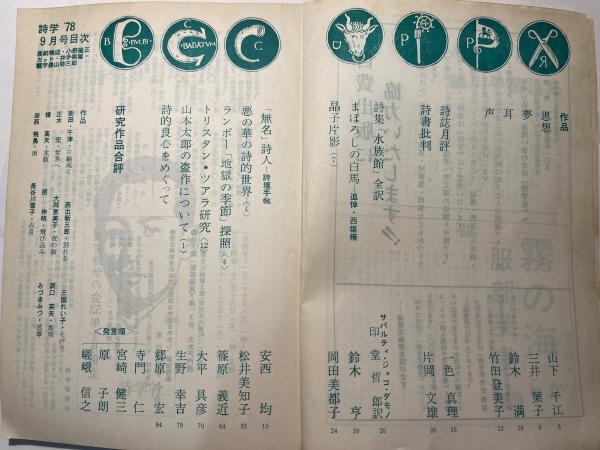 作品
思想 山下千江 6
夢 三井葉子 8
耳 鈴木満 10
声 竹田登美子 12
詩誌月評 一色真理 16
詩書批判 片岡文雄 20
詩集「水族館」全訳 サバルティ・ジョコ・ダモノ 印堂哲郎訳 26
まぼろしの白馬 追悼・西垣脩 鈴木亨 39
晶子片影〈7〉 岡田美都子 24
「無名」詩人・詩壇手帖 安西均 15
悪の華の詩的世界〈4〉 松井美知子 55
ランボー「地獄の季節」探照〈4〉 篠原義近 64
トリスタン・ツアラ研究〈12〉 大平具彦 70
山本太郎の盗作について〈1〉 生野幸吉 79
詩的良心をめぐって 郷原宏 94
研究作品合評
〈発言順〉
寺門仁
宮崎健三
原子朗
嵯峨信之
作品
西出新三郎・別れる
大岡恵美子
原
長谷川雪子・六月
三国れい子
洞口英夫
みづきみづ
詩学 78
9月号目次